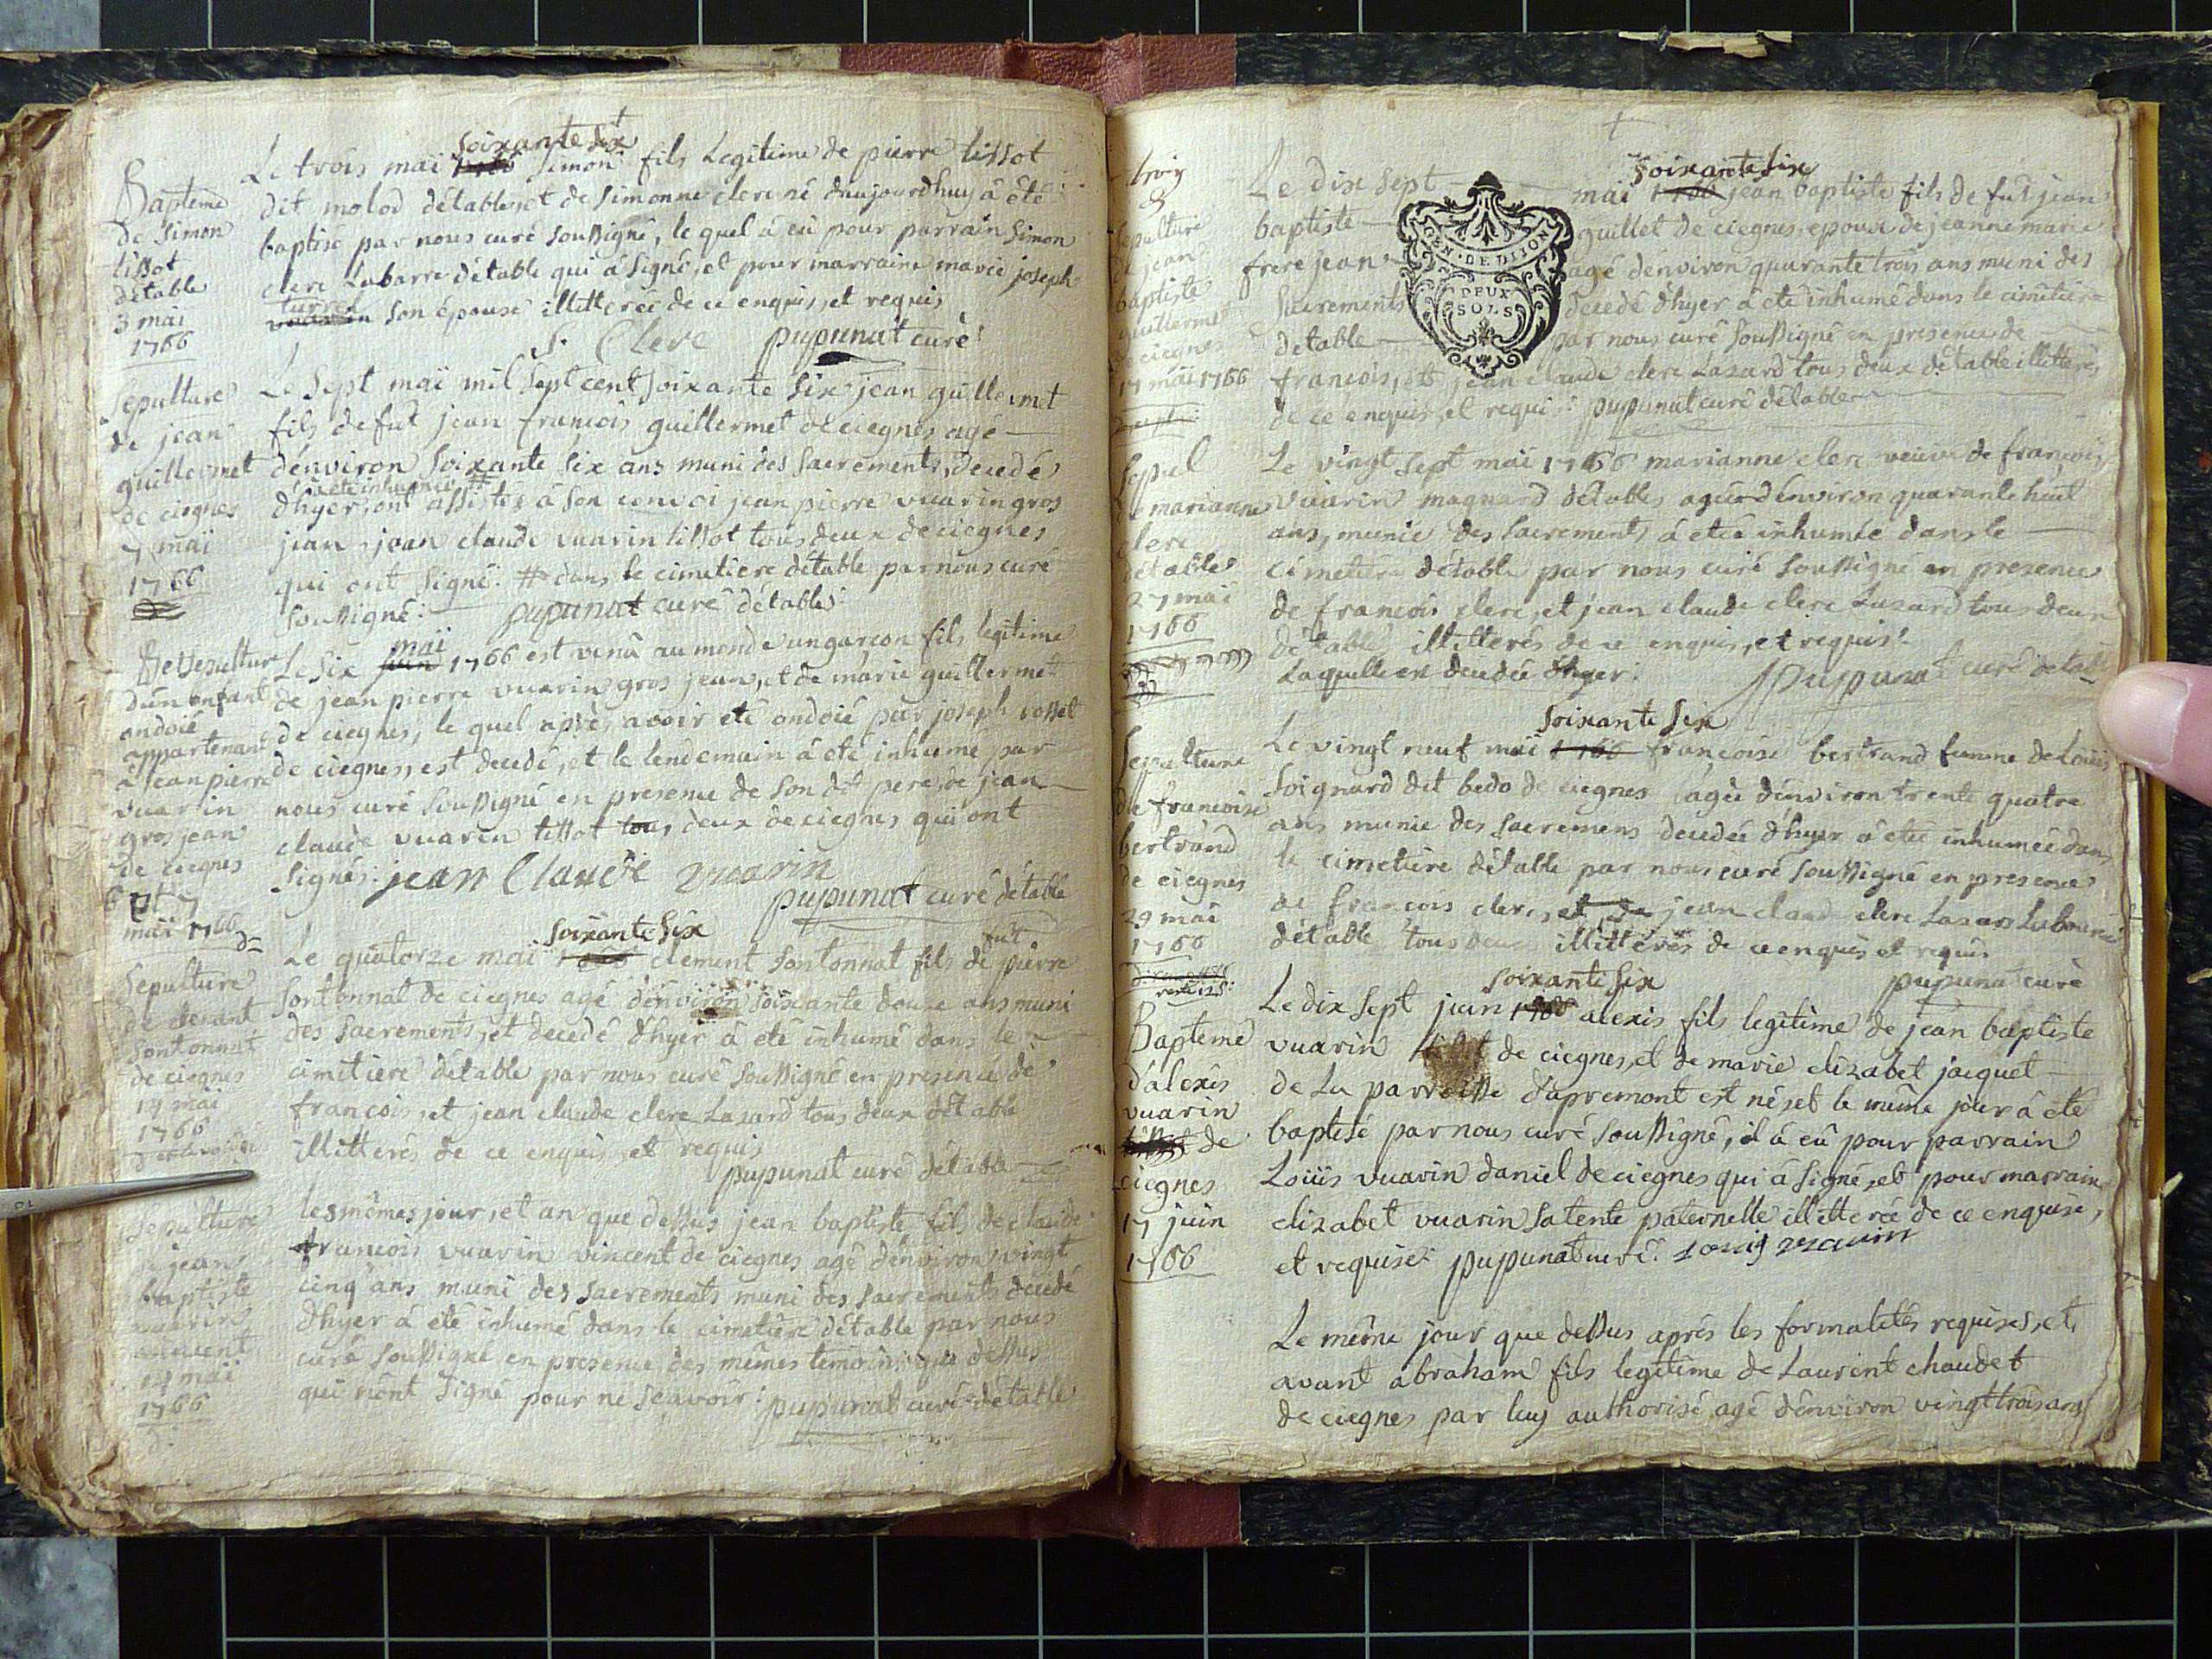 Bapteme
de Simon
tissot
détable
3 mai
1766
soixante six
Le trois mai 1766 Simon fils Legitime de pierre tissot
dit molod détable, et de Simonne clerc né daujourdhuy à été
baptisé par nous curé soussigné, le quel à eû pour parrain Simon
clerc Labarre détable qui à signé, et pour marraine marie joseph
turrel
vuarin son épouse illitterée de ce enquis, et requis
S. Clerc pupunat curé
Sepulture
de jean
guillermet
de ciegnes
7 mai
1766
Le Sept mai mil sept cent soixante six jean guillermet
fils de fut jean francois guillermet de ciegnes agé
dénviron soixante six ans muni des sacrements, decedé
à eté inhumé #
dhyer, ont assistés à son convoi jean pierre vuarin gros
jean, jean claude vuarin tissot tous deux de ciegnes
qui ont signé. # dans le cimetiere détable par nous curé
soussigné: pupunat curé détable
B et sepultur
dun enfant
ondoié
appartenant
à jean pierre
vuarin
gros jean
de ciegnes
6 et 7
mai 1766
mai
Le Six juin 1766 est venû au monde un garcon fils legitime
de jean pierre vuarin gros jean, et de marie guillermet
de ciegnes, le quel après avoir eté ondoié par joseph rosset
de ciegnes, est decedé, et le lendemain à eté inhumé par
nous curé soussigné en presence de son dit pere, de jean
claude vuarin tissot tous deux de ciegnes qui ont
signés: jean Claude vuarin
pupunat curé détable
Sepulture
de clemant
sontonnat
de ciegnes
14 mai
1766
soixante six
fut
Le quatorze mai 1766 clement sontonnat fils de pierre
sontonnat de ciegnes agé dénviron soixante douze ans muni
des sacrements, et decedé dhyer à eté inhumé dans le
cimetiere détable par nous curé soussigné en presence de
francois, et jean claude clerc Lazard tous deux détable
illitterés de ce enquis, et requis
pupunat curé détable
Sepulture
de jean
baptiste
vuarin
vincent
14 mai
1766
les mêmes jour, et an que dessus jean baptiste fils de claude
francois vuarin vincent de ciegnes agé dénviron vingt
cinq ans muni des sacrements muni des sacrements decedé
dhyer à été inhumé dans le cimetiere détable par nous
curé soussigné en presence des mêmes temoins que dessus
qui nont signé pour ne scavoir: pupunat curé détable
sepulture
de jean
baptiste
guillermet
de ciegnes
17 mai 1766
soixante six
Le dix sept mai 1766 jean baptiste fils de fut jean
baptiste guillet de ciegnes, epoux de jeanne marie
frere jean agé dénviron quarante trois ans muni des
Sacrements decedé dhyer à eté inhumé dans le cimetiere
détable par nous curé soussigné en presence de
francois, et jean claude clerc Lazard tous deux détable illitterés
de ce enquis, et requis: pupunat curé détable
GEN·DE DIJON
DEUX
SOLS
Sepul
de marianne
clerc
détable
27 mai
1766
Le vingt sept mai 1766 marianne clerc veuve de francois
vuarin magnard détable, agée dénviron quarante huit
ans, munie des sacrements à eteé inhumée dans le
cimetiere détable par nous curé soussigné en presence
de francois clerc, et jean claude clerc Lazard tous deux
détable illitterés de ce enquis, et requis!
Laquelle est decedée dhyer: pupunat curé détabl
Sepulture
de francoise
bertrand
de ciegnes
29 mai
1766
soixante six
Le vingt neuf mai 1766 francoise bertrand femme de Loüis
Soignard dit bedo de ciegnes agée dénviron trente quatre
ans munie des sacremens decedée dhyer à eteé inhumée dans
le cimetiere détable par nous curé soussigné en presence
de francois clerc, et de jean claude clerc Lazard
détable tous deux illitterés de ce enquis et requis
pupunat curé
Bapteme
dalexis
vuarin
tissot de
ciegnes
17 juin
1766
soixante six
Le dix sept juin 1766 alexis fils legitime de jean baptiste
vuarin de ciegnes, et de marie elizabet jacquet
de La parroisse dapremont est né, et le même jour à eté
baptisé par nous curé soussigné, il à eû pour parrain
Loüis vuarin daniel de ciegnes qui à signé, et pour marraine
elizabet vuarin sa tente paternelle illitterée de ce enquise,
et requise: pupunat curé. Louis vuarin
Le même jour que dessus après les formalités requises, et
avant abraham fils legitime de Laurent chaudet
de ciegnes par luy authorisé, agé dénviron vingt trois ans